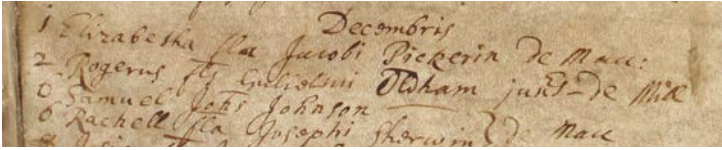 Decembris
1 Elizabetha fla Jacobi Pickerin de Macc:
2 Rogerus fls Gulielmi Oldham junr de Mill
6 Samuel Johs Johnson
6 Rachell fla Josephi Sherwin } de Macc